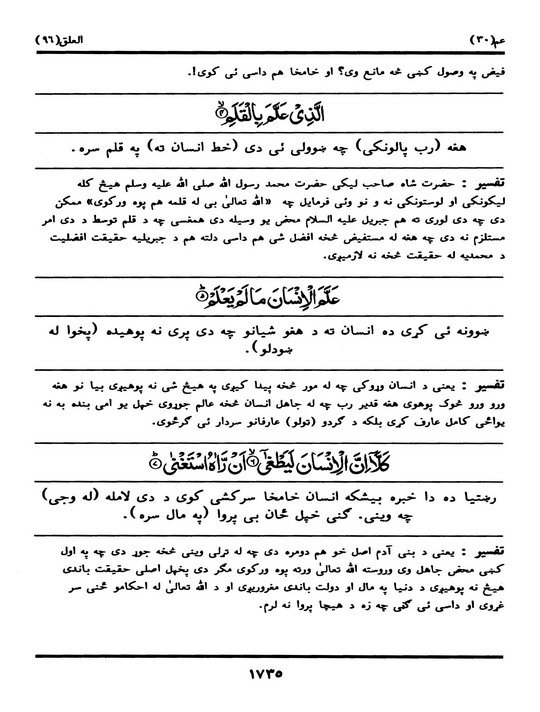 عم(۳۰) العلق(۹٦)
فیض په وصول کښی څه مانع وی؟ او خامخا هم داسی ئی کوی!.
الَّذِیْ عَلَّمَ بِالْقَلَمِ ۙ﴿۴﴾
هغه (رب پالونکی) چه ښوولی ئی دی (خط انسان ته) په قلم سره.
تفسیر : حضرت شاه صاحب لیکی حضرت محمد رسول الله صلی الله علیه وسلم هیڅ کله
لیکونکی او لوستونکی نه و نو وئی فرمایل چه «الله تعالیٰ بی له قلمه هم پوه ورکوی» ممکن
دی چه دی لوری ته هم جبریل علیه السلام محض یو وسیله دی همغسی چه د قلم توسط د دی امر
مستلزم نه دی چه هغه له مستفیض څخه افضل شی هم داسی دلته هم د جبریلیه حقیقت افضلیت
د محمدیه له حقیقت څخه نه لازمیږی.
عَلَّمَ الْاِنْسَانَ مَا لَمْ یَعْلَمْ ؕ﴿۵﴾
ښوونه ئی کړی ده انسان ته د هغو شیانو چه دی پری نه پوهیده (پخوا له
ښودلو).
تفسیر : یعنی د انسان وړوکی چه له مور څخه پیدا کیږی په هیڅ شی نه پوهیږی بیا نو هغه
ورو ورو څوک پوهوی هغه قدیر رب چه له جاهل انسان څخه عالم جوړوی خپل یو امی بنده به نه
یواځی کامل عارف کړی بلکه د ګردو (ټولو) عارفانو سردار ئی ګرځوی.
کَلَّاۤ اِنَّ الْاِنْسَانَ لَیَطْغٰۤی ۙ﴿۶﴾ اَنْ رَّاٰهُ اسْتَغْنٰی ؕ﴿۷﴾
رښتیا ده دا خبره بیشکه انسان خامخا سرکشی کوی د دی لامله (له وجی)
چه وینی. ګنی خپل ځان بی پروا (په مال سره).
تفسیر : یعنی د بنی آدم اصل خو هم دومره دی چه له ټرلی وینی څخه جوړ دی چه په اول
کښی محض جاهل وی وروسته الله تعالیٰ ورته پوه ورکوی مګر دی پخپل اصلی حقیقت باندی
هیڅ نه پوهیږی د دنیا په مال او دولت باندی مغروریږی او د الله تعالیٰ له احکامو څخنی سر
غړوی او داسی ئی ګڼی چه زه د هیچا پروا نه لرم.
۱۷۳۵